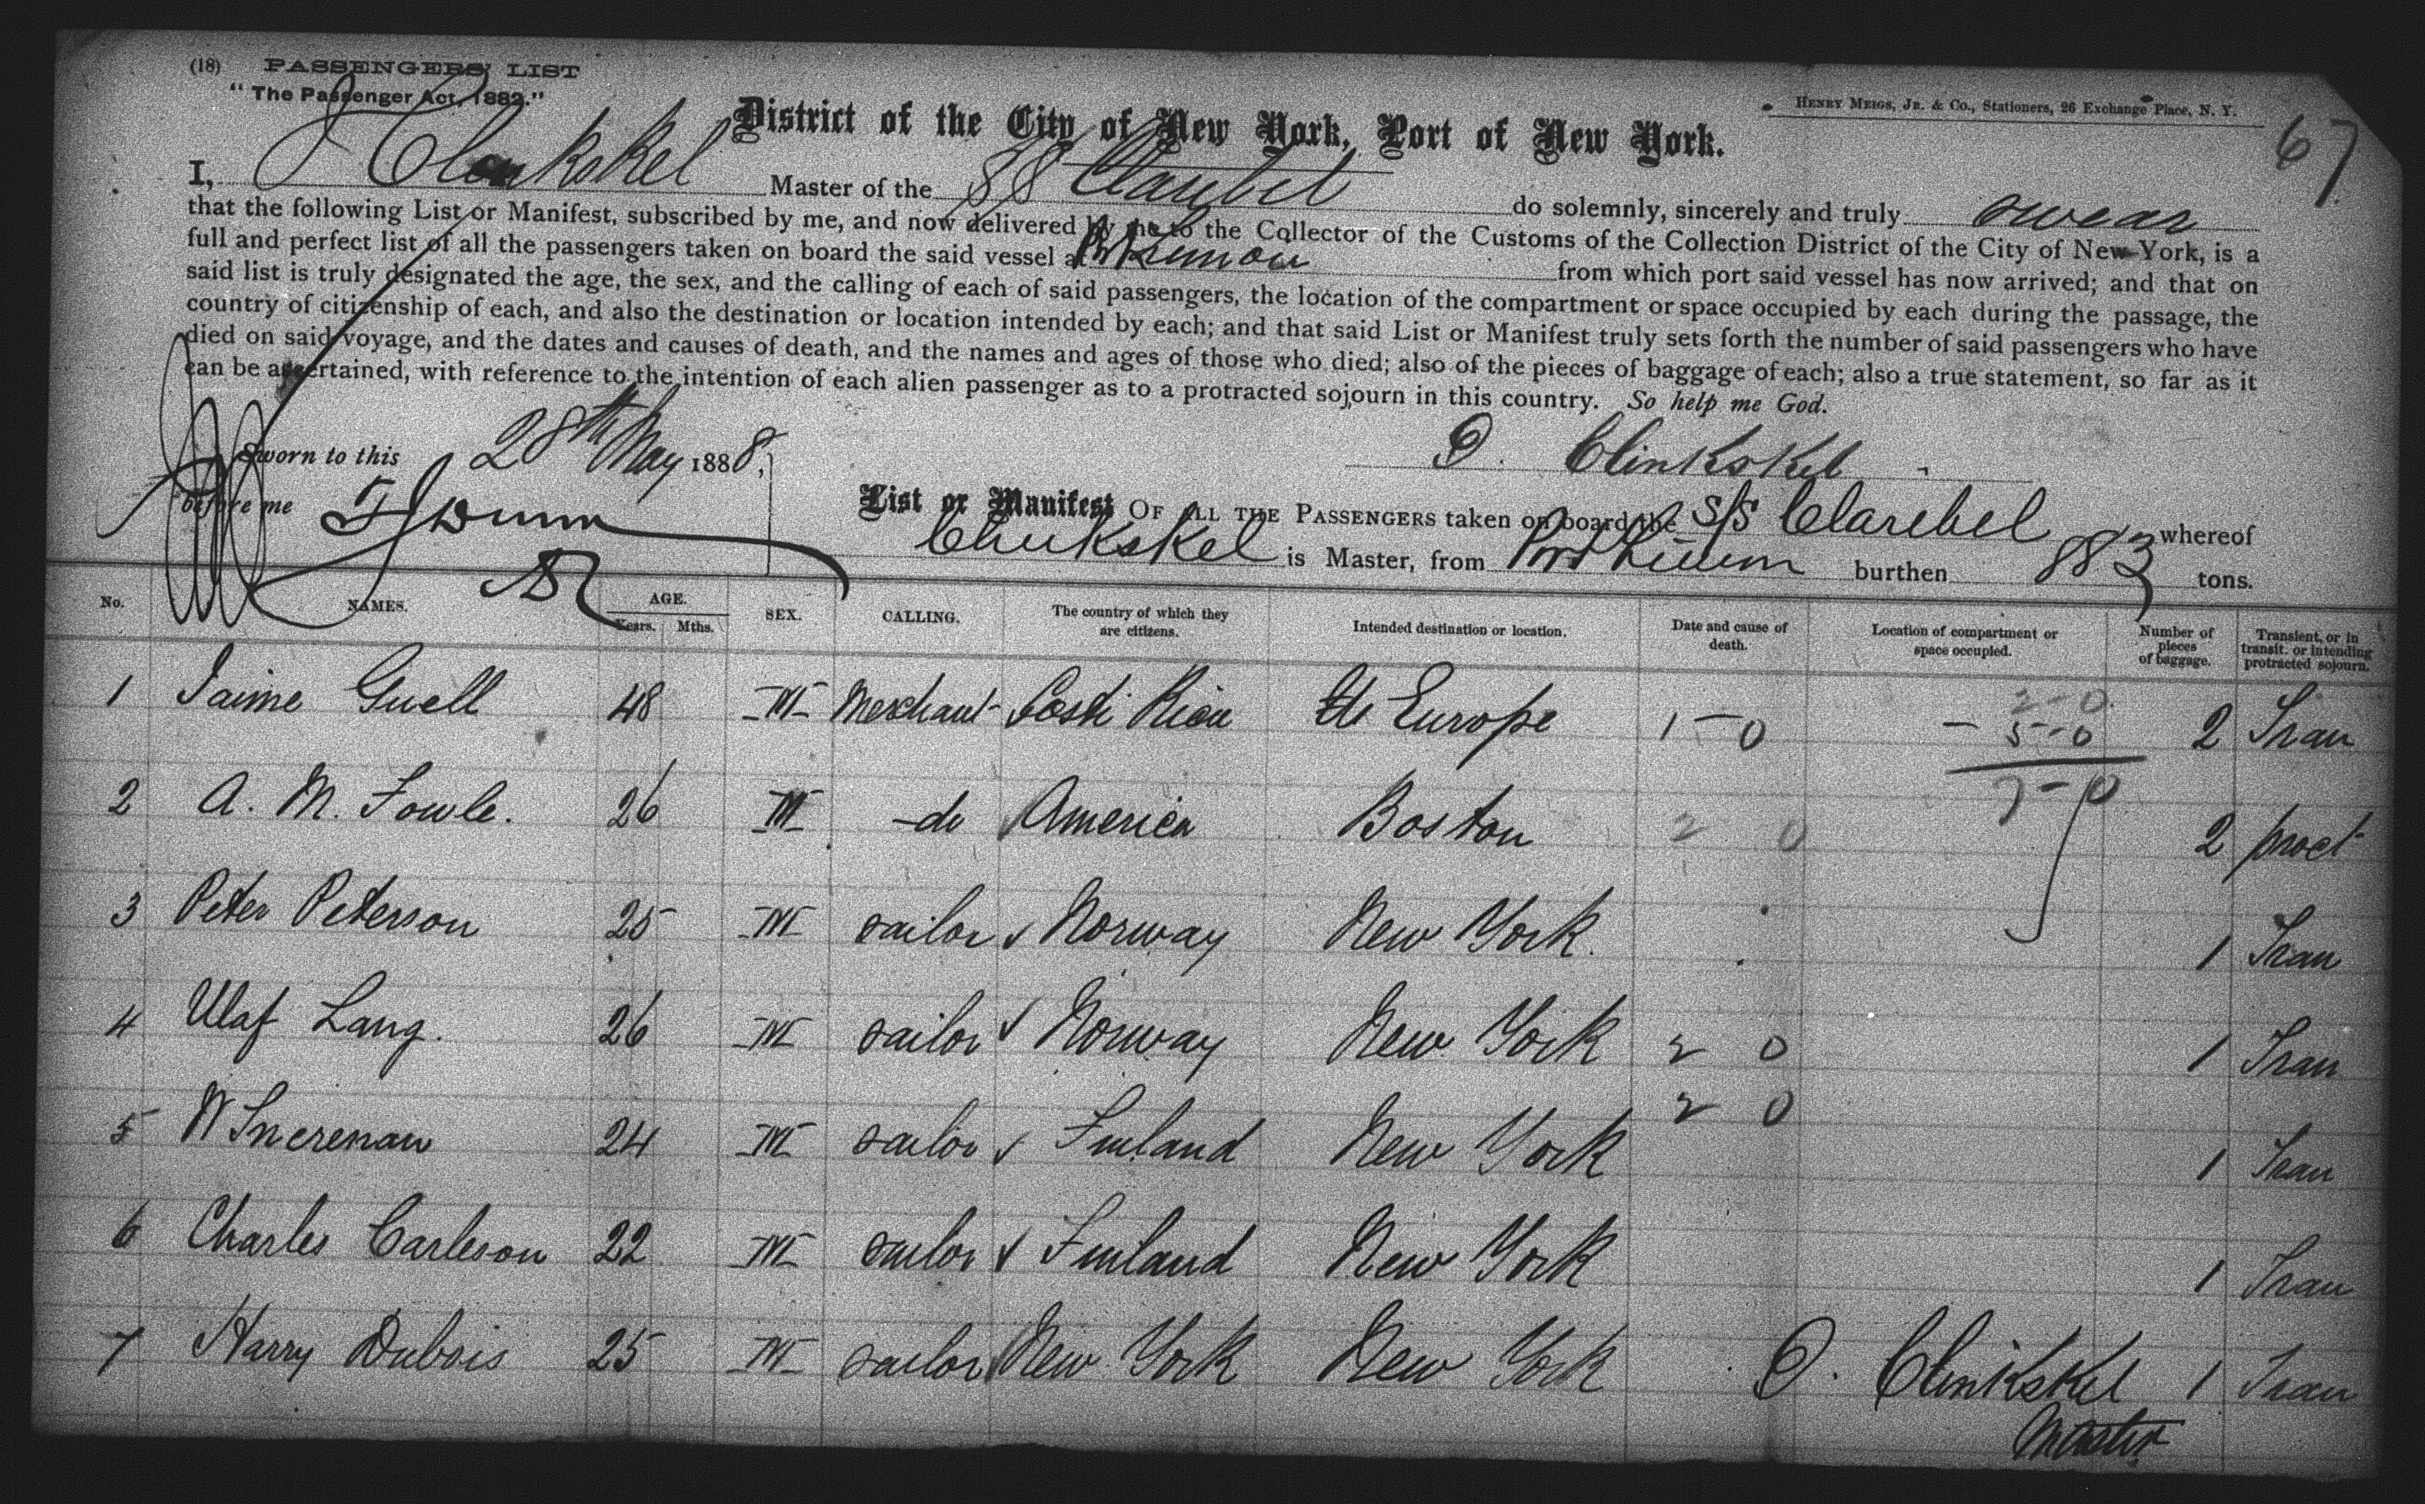 (18) PASSENGERS' LIST
"The Passenger Act, 1882."
HENRY MEIGS, JR. & CO., Stationers, 26 Exchange Place, N. Y.
67
District of the City of New York, Port of New York.
I, Clinkskel Master of the SS Claribel do solemnly, sincerely and truly swear
that the following List or Manifest, subscribed by me, and now delivered by me to the Collector of the Customs of the Collection District of the City of New York, is a
full and perfect list of all the passengers taken on board the said vessel at from which port said vessel has now arrived; and that on
said list is truly designated the age, the sex, and the calling of each of said passengers, the location of the compartment or space occupied by each during the passage, the
country of citizenship of each, and also the destination or location intended by each; and that said List or Manifest truly sets forth the number of said passengers who have
died on said voyage, and the dates and causes of death, and the names and ages of those who died; also of the pieces of baggage of each; also a true statement, so far as it
can be ascertained, with reference to the intention of each alien passenger as to a protracted sojourn in this country. So help me God.
Sworn to this 28th May 1888,
O. Clinkskel
before me
List or Manifest OF ALL THE PASSENGERS taken on board the S/S Claribel whereof
Clinkskel is Master, from Port burthen 883 tons.
No. NAMES. AGE. Years. Mths. SEX. CALLING. The country of which they are citizens. Intended destination or location. Date and cause of death. Location of compartment or space occupied. Number of pieces of baggage. Transient, or in transit, or intending protracted sojourn.
1 Jaime Guell 48 M Merchant Costa Rica Europe 1-0 2-0 - 5-0 2 Tran
7-0
2 A. M. Fowle. 26 M -do America Boston 2 0 2 proct
3 Peter Peterson 25 M sailor Norway New York. 1 Tran
4 Ulaf Lang. 26 M sailor Norway New York 2 0 1 Tran
2 0
5 24 M sailor Finland New York 1 Tran
6 Charles Carleson 22 M sailor Finland New York 1 Tran
7 Harry Dubois 25 M sailor New York New York 1 Tran
O. Clinkskel
Master